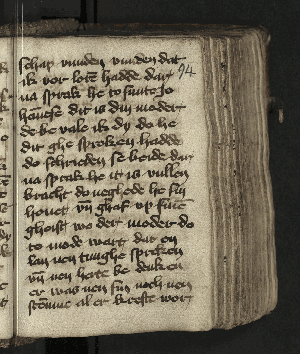 schap vunden vunden dat
ik vor lorē hadde dar 94
na sprak he to sunte jo
hanese dit is din moder
de be vale ik dy do he
dit ghe sproken hadde
do schrieden se beide dar
na sprak he it is vullen
bracht do neghede he sin
houet vn̄ ghaf up sinē
gheist we der moder do
to mode wart dat en
kan nen tunghe spreken
vn̄ nen herte be denken
er was nen sin noch nen
stēme al er krefte wort